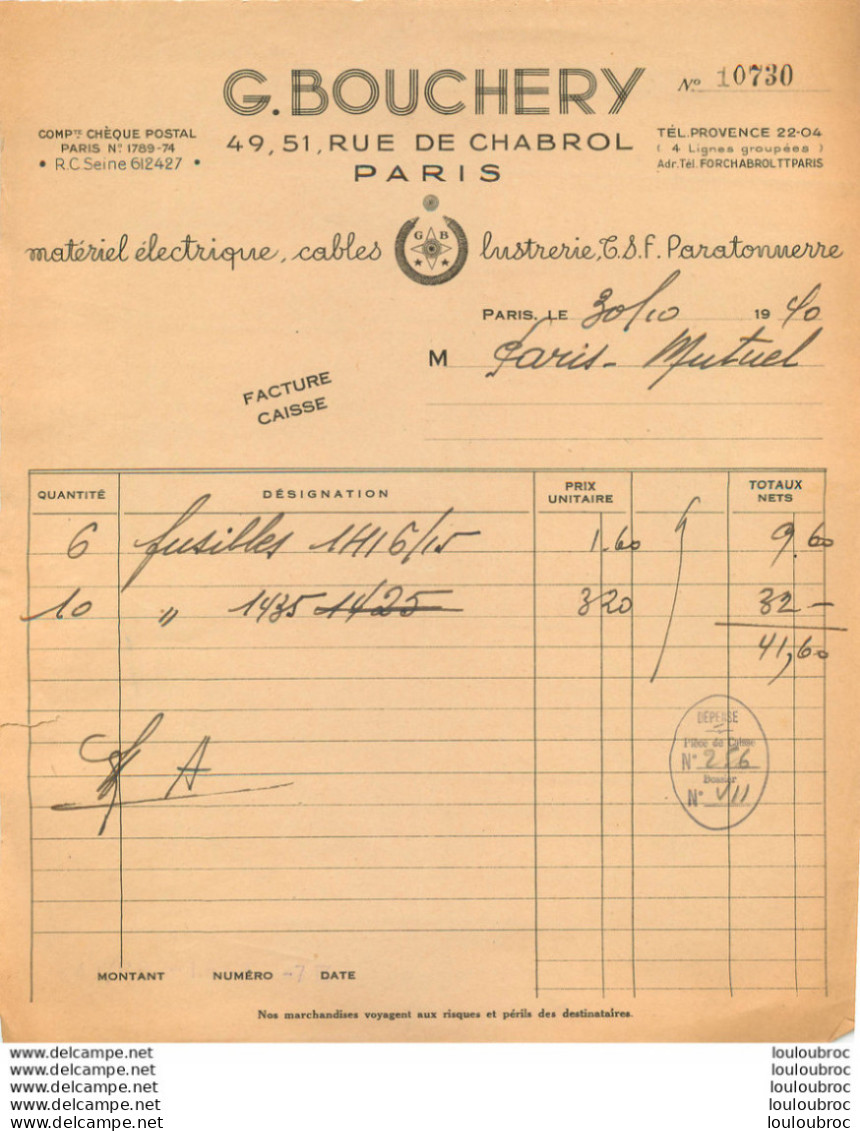 G. BOUCHERY
N° 10730
COMPTE CHÈQUE POSTAL
PARIS N° 1789-74
• R.C. Seine 612427 •
49, 51, RUE DE CHABROL
PARIS
TÉL. PROVENCE 22-04
( 4 Lignes groupées )
Adr. Tél. FORCHABROL TT PARIS
G B
matériel électrique, cables lustrerie, T.S.F. Paratonnerre
PARIS, LE 30/10 1940
M Paris-Mutuel
FACTURE
CAISSE
QUANTITÉ DÉSIGNATION PRIX UNITAIRE TOTAUX NETS
6 fusilles 1416/15 1.60 9.60
10 " 1435 1425 3 20 32 —
41,60
DÉPENSE
Pièce de Caisse
N° 256
Dossier
N° VII
A
MONTANT NUMÉRO DATE
Nos marchandises voyagent aux risques et périls des destinataires.
www.delcampe.net louloubroc
www.delcampe.net louloubroc
www.delcampe.net louloubroc
www.delcampe.net louloubroc
www.delcampe.net louloubroc